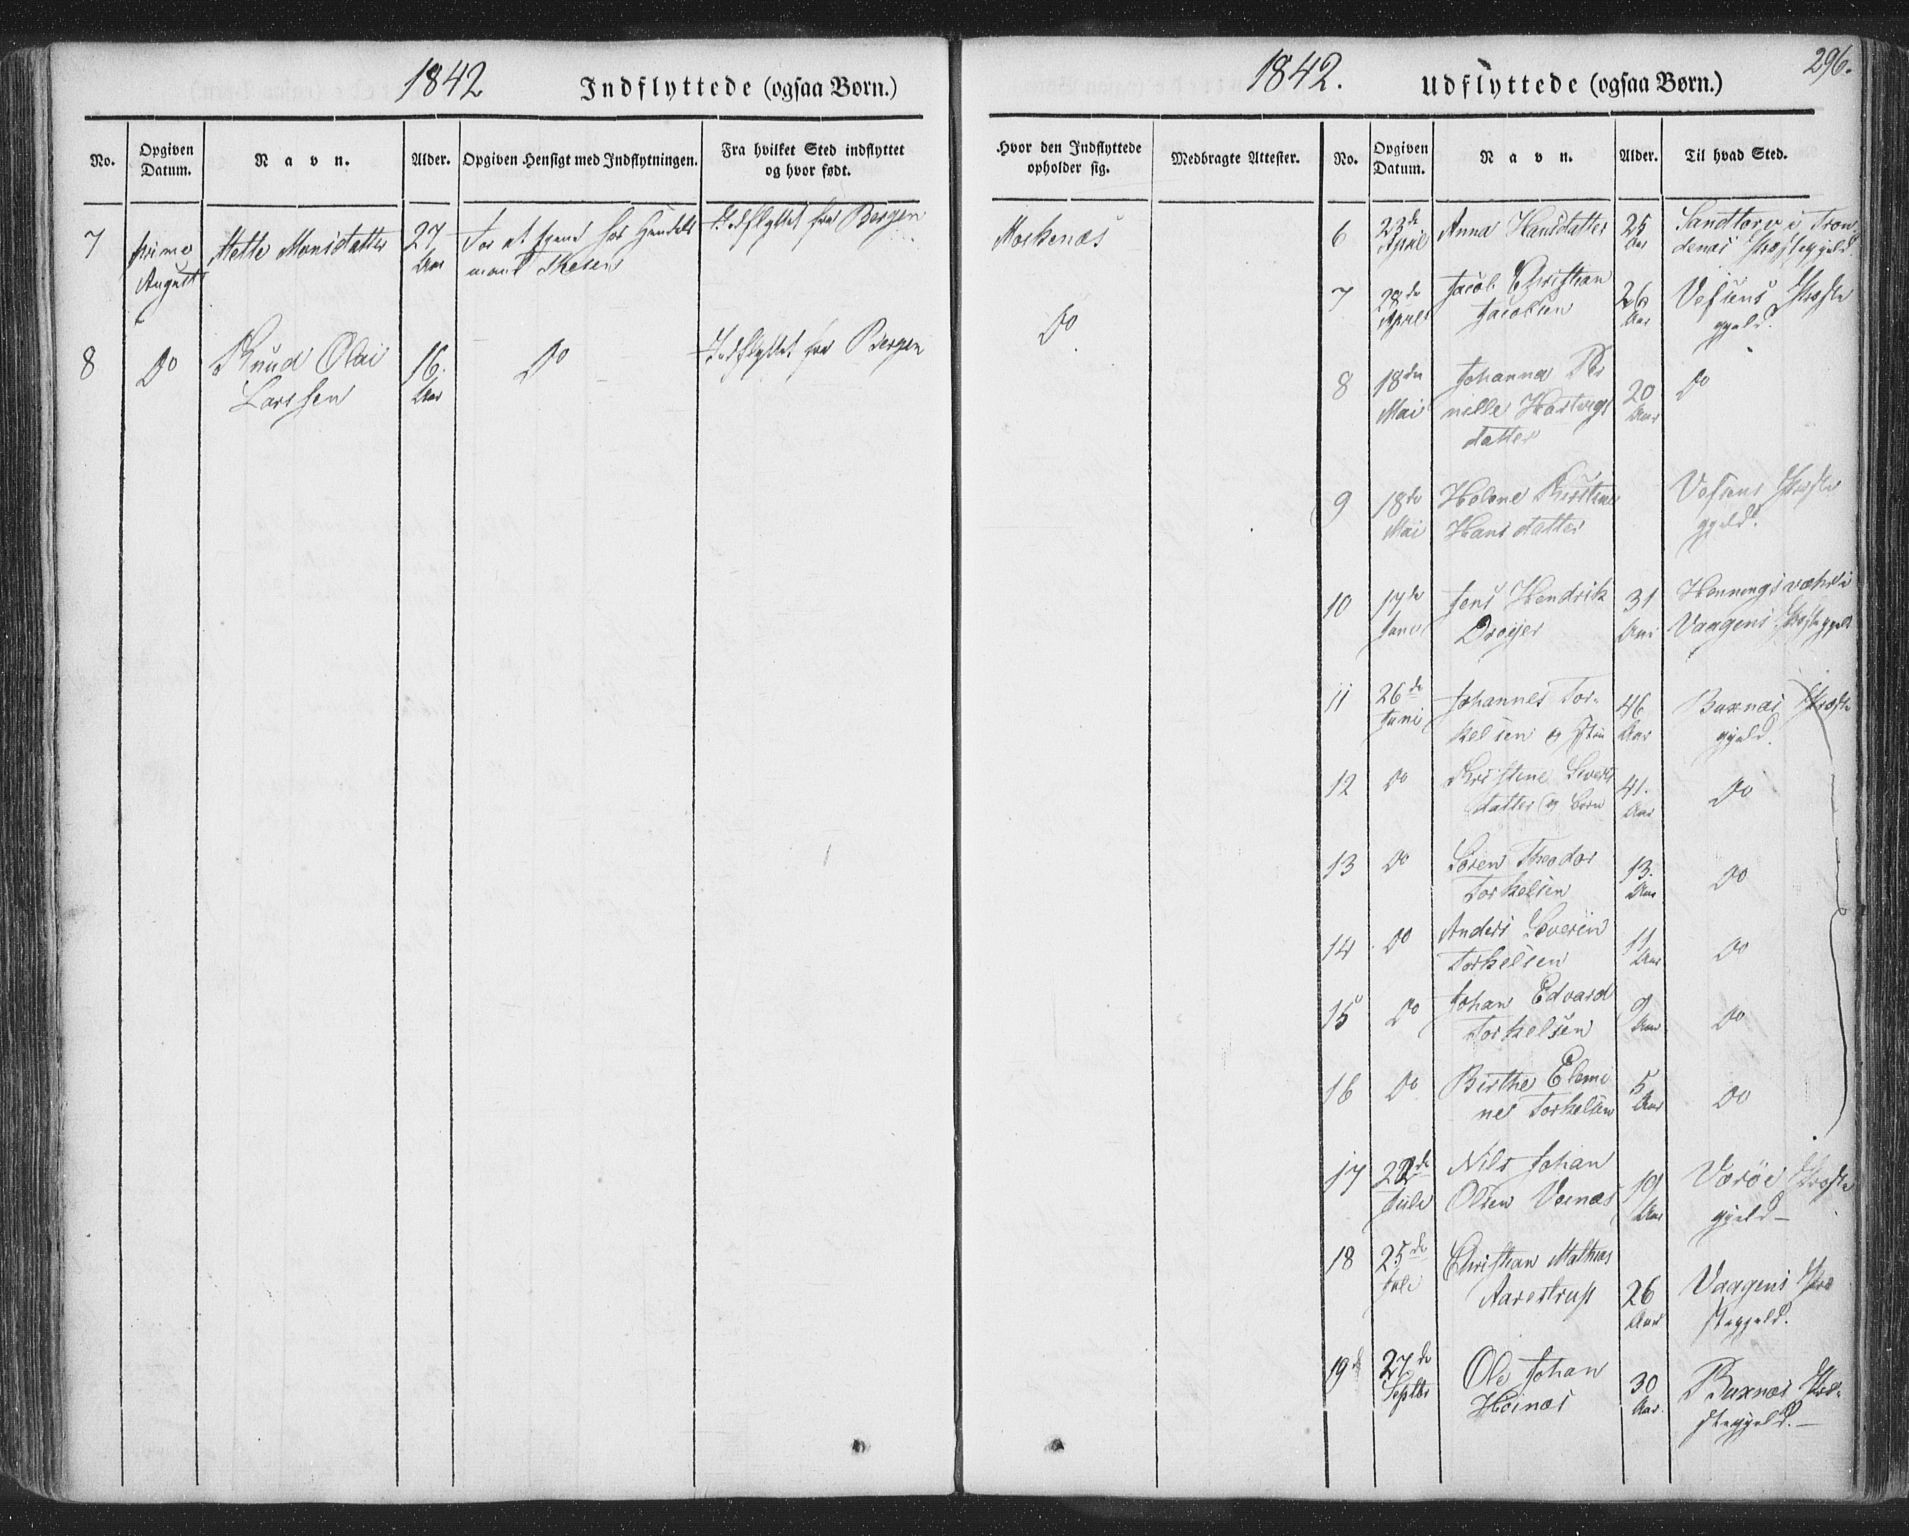 1842 Indflyttede (ogsaa Børn.)
No. Opgiven Datum. Navn. Alder. Opgiven Hensigt med Indflytningen. Fra hvilket Sted indflyttet og hvor født.
7 primo August Mette Monsdatter 27 Aar For at tjene hos Handels
mand Indflyttet fra Bergen
8 Do Knud Olai
Larssen 16. Aar Do Indflyttet fra Bergen
1842. Udflyttede (ogsaa Børn.) 296.
Hvor den Indflyttede opholder sig. Medbragte Attester. No. Opgiven Datum. Navn. Alder. Til hvad Sted.
Moskenæs
Do
6 23de April Anna Hansdatter 25 Aar Sandtorv i Tron
denæs Præstegjeld.
7 28de April Jacob Christian
Jacobsen 26 Aar Vefsens Præste
gjeld.
8 18de Mai Johanna Per
nille Hartvigs
datter 20 Aar Do
9 18de Mai Helene Kirstine
Hansdatter Vefsens Præste
gjeld.
10 17de Juni Jens Hendrik
Dreyer 31 Aar Henningsvæhr i
Vaagens Præstegjeld
11 26de Juni Johannes Tor-
kelsen 46 Aar Buxnæs Præste
gjeld.
12 Do Kristine Siverts
datter og Børn 41. Aar Do
13 Do Søren Theodor
Torkelsen 13. Aar Do
14 Do Anders Severin
Torkelsen 11 Aar Do
15 Do Johan Edvard
Torkelsen 9 Aar Do
16 Do Birthe
Torkelsen 5 Aar Do
17 22de Juli Nils Johan
Olsen 19 Aar Værøe Præste
gjeld -
18 25de Juli Christian Mathias
Aarestrup 26 Aar Vaagens Præ
stegjeld.
19 27de Septbr Ole Johan
Høinæs 30 Aar. Buxnæs Præ-
stegjeld. -